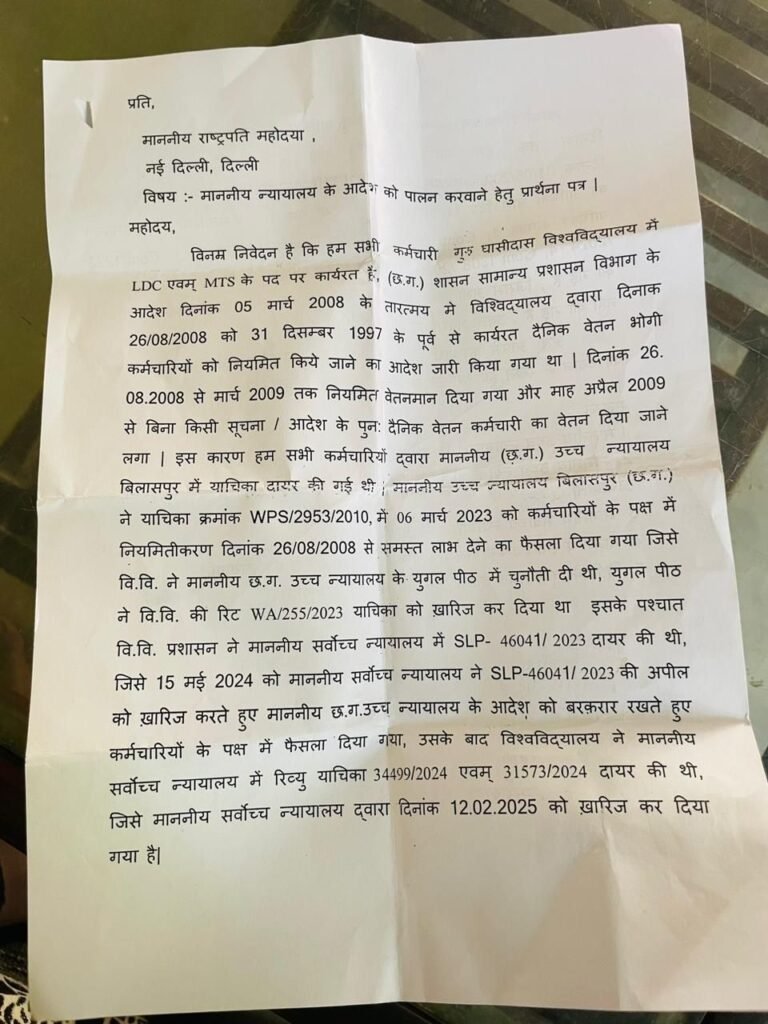 प्रति,
माननीय राष्ट्रपति महोदया ,
नई दिल्ली, दिल्ली
विषय :- माननीय न्यायालय के आदेश को पालन करवाने हेतु प्रार्थना पत्र |
महोदय,
विनम्र निवेदन है कि हम सभी कर्मचारी गुरु घासीदास विश्वविद्यालय में
LDC एवम् MTS के पद पर कार्यरत है, (छ.ग.) शासन सामान्य प्रशासन विभाग के
आदेश दिनांक 05 मार्च 2008 के तारत्मय मे विश्विद्यालय द्वारा दिनाक
26/08/2008 को 31 दिसम्बर 1997 के पूर्व से कार्यरत दैनिक वेतन भोगी
कर्मचारियों को नियमित किये जाने का आदेश जारी किया गया था | दिनांक 26.
08.2008 से मार्च 2009 तक नियमित वेतनमान दिया गया और माह अप्रैल 2009
से बिना किसी सूचना / आदेश के पुन: दैनिक वेतन कर्मचारी का वेतन दिया जाने
लगा | इस कारण हम सभी कर्मचारियों द्वारा माननीय (छ.ग.) उच्च न्यायालय
बिलासपुर में याचिका दायर की गई थी | माननीय उच्च न्यायालय बिलासपुर (छ.ग.)
ने याचिका क्रमांक WPS/2953/2010, में 06 मार्च 2023 को कर्मचारियों के पक्ष में
नियमितीकरण दिनांक 26/08/2008 से समस्त लाभ देने का फैसला दिया गया जिसे
वि.वि. ने माननीय छ.ग. उच्च न्यायालय के युगल पीठ में चुनौती दी थी, युगल पीठ
ने वि.वि. की रिट WA/255/2023 याचिका को ख़ारिज कर दिया था इसके पश्चात
वि.वि. प्रशासन ने माननीय सर्वोच्च न्यायालय में SLP- 46041/ 2023 दायर की थी,
जिसे 15 मई 2024 को माननीय सर्वोच्च न्यायालय ने SLP-46041/ 2023 की अपील
को ख़ारिज करते हुए माननीय छ.ग.उच्च न्यायालय के आदेश को बरक़रार रखते हुए
कर्मचारियों के पक्ष में फैसला दिया गया, उसके बाद विश्वविद्यालय ने माननीय
सर्वोच्च न्यायालय में रिव्यु याचिका 34499/2024 एवम् 31573/2024 दायर की थी,
जिसे माननीय सर्वोच्च न्यायालय द्वारा दिनांक 12.02.2025 को ख़ारिज कर दिया
गया है|